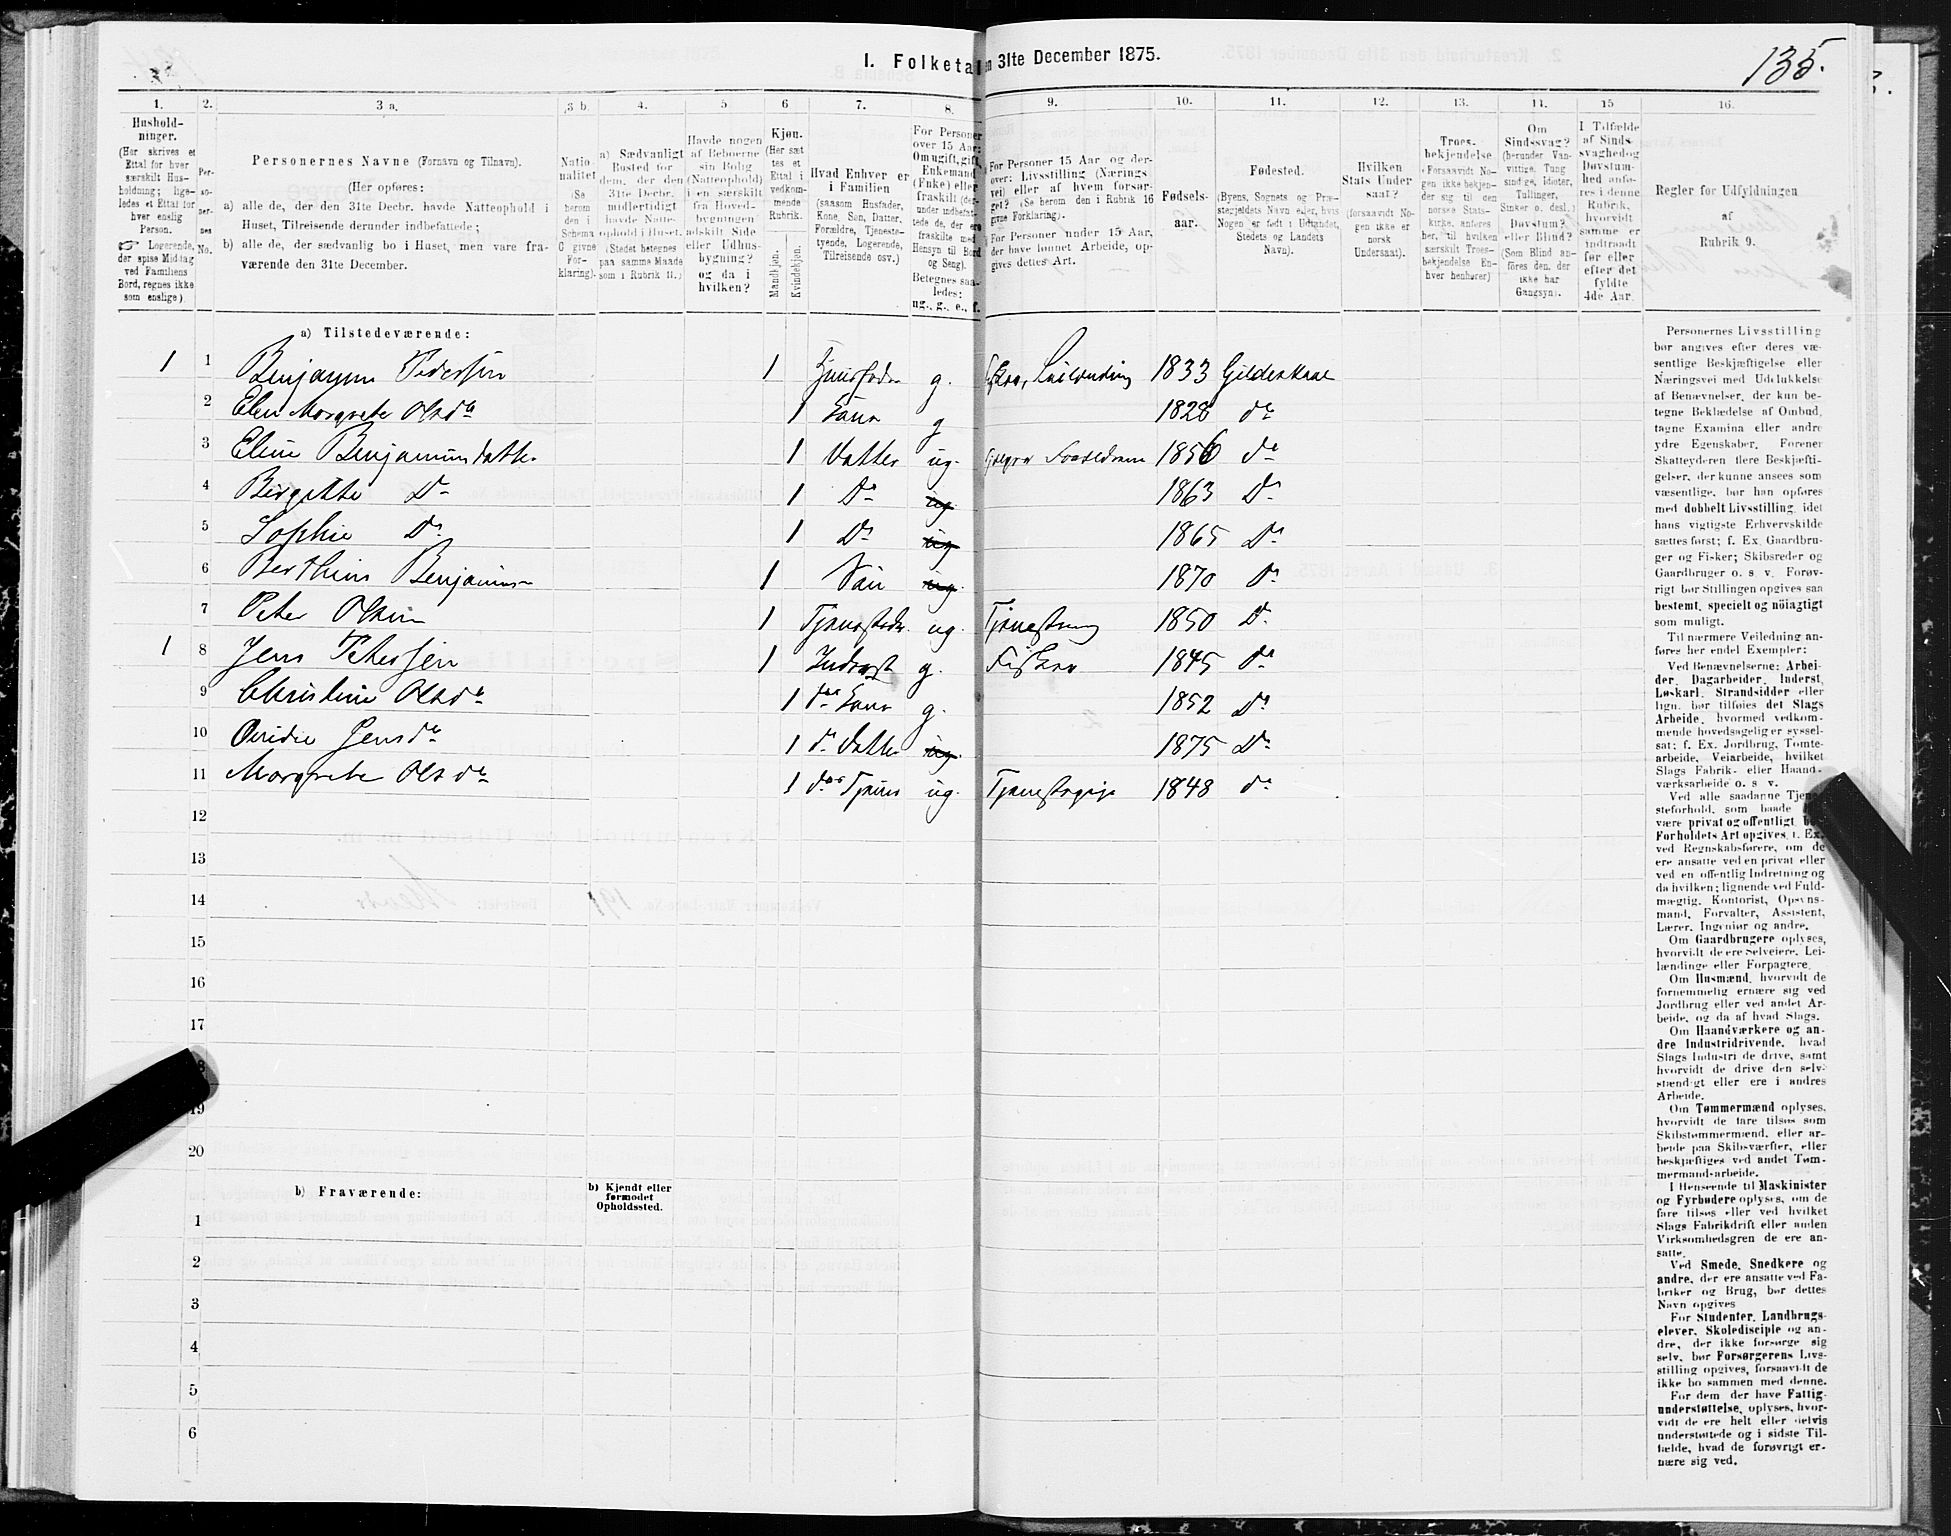 135.
I. Folketal
en 31te December 1875.
1. 2. 3 a. 3 b. 4. 5 6 7. 8. 9. 10. 11. 12. 13. 14. 15 16.
Hushold-
ninger.
(Her skrives et
Ettal for hver
særskilt Hus-
holdning; lige-
ledes et Ettal for
hver enslig
Person.
Logerende,
der spise Middag
ved Familiens
Bord, regnes ikke
som enslige).
Per-
so-
ner-
nes
No.
Personernes Navne (Fornavn og Tilnavn).
(Her opføres:
a) alle de, der den 31te Decbr. havde Natteophold i
Huset, Tilreisende derunder indbefattede;
b) alle de, der sædvanlig bo i Huset, men vare fra-
værende den 31te December.
Natio-
nalitet
(Se
herom
den i
Schema
G givne
For-
klaring).
a) Sædvanligt
Bosted for
dem, der den
31te Decbr.
midlertidigt
havde Natte-
ophold i Huset.
(Stedet betegnes
paa samme Maade
som i Rubrik 11.)
Havde nogen
af Beboerne
sin Bolig
(Natteophold)
i en særskilt
fra Hoved-
bygningen
adskilt Side
eller Udhus-
bygning?
og da i
hvilken?
Kjøn.
(Her sæt
tes et
Ettal i
vedkom-
mende
Rubrik.
Mandkjøn.
Kvindekjøn.
Hvad Enhver er
i Familien
(saasom Husfader,
Kone, Søn, Datter,
Forældre, Tjeneste-
tyende, Logerende,
Tilreisende osv.)
For Personer
over 15 Aar:
Om ugift, gift,
Enkemand
(Enke) eller
fraskilt (der-
under indbefat-
tede de, der ere
fraskilte med
Hensyn til Bord
og Seng).
Betegnes saa-
ledes:
ug., g., e., f.
For Personer 15 Aar og der-
over: Livsstilling (Nærings
vei) eller af hvem forsør-
get? (Se herom den i Rubrik 16
givne Forklaring).
For Personer under 15 Aar,
der have lønnet Arbeide, op-
gives dettes Art.
Fødsels-
aar.
Fødested.
(Byens, Sognets og Præ-
stegjeldets Navn eller, hvis
Nogen er født i Udlandet,
Stedets og Landets
Navn).
Hvilken
Stats Under
saat?
(forsaavidt No-
gen ikke er
norsk
Undersaat).
Troes-
bekjendelse
(Forsaavidt No-
gen ikke bekjen-
der sig til den
norske Stats-
kirke, anføres
her, til hvilken
særskilt Troes-
bekjendelse En-
hver henhører)
Om
Sindssvag?
(herunder Van-
vittige, Tung
sindige, Idioter,
Tullinger,
Sinker o. desl.)
Døvstum?
eller Blind?
(Som Blind an-
føres den, der
ikke har
Gangsyn).
I Tilfælde
af Sinds-
svaghed og
Døvstum-
hed anfø-
res i denne
Rubrik,
hvorvidt
samme er
indtraadt
før eller
efter det
fyldte
4de Aar.
Regler for Udfyldningen
af
Rubrik 9.
a) Tilstedeværende:
1 1 Benjamin Pedersen 1 Huusfader g. 1833 Gildeskaal
2 Elen Margrete Olsdtr 1 Kone g 1828 do
3 Eline Benjaminsdatter 1 Datter ug. 1856 do
4 Birgitte Do 1 Do ug 1863 Do
5 Sophie Do 1 Do ug 1865 Do
6 Berthius Benjamins 1 Søn ug. 1870 Do
7 Peter Olsen 1 ug. 1850 Do
1 8 Jens Petersen 1 Inderst g. Fisker 1845 do
9 Christine Olsdtr 1 ds Kone g. 1852 Do
10 Jensdtr 1 ds Datter ug. 1875 Do
11 Margrete Olsdtr 1 ug. Tjenestepige 1848 do
12
13
14
15
16
17
19
20
b) Fraværende:
b) Kjendt eller
formodet
Opholdssted.
1
2
3
4
5
6
Personernes Livsstilling
bør angives efter deres væ-
sentlige Beskjæftigelse eller
Næringsvei med Udelukkelse
af Benævnelser, der kun be-
tegne Beklædelse af Ombud,
tagne Examina eller andre
ydre Egenskaber. Forener
Skatteyderen flere Beskjæfti-
gelser, der kunne ansees som
væsentlige, bør han opføres
med dobbelt Livsstilling, idet
hans vigtigste Erhvervskilde
sættes først; f. Ex. Gaardbru-
ger og Fisker; Skibsreder og
Gaardbruger o. s. v. Forøv-
rigt bør Stillingen opgives saa
bestemt, specielt og nöiagtigt
som muligt.
Til nærmere Veiledning an-
føres her endel Exempler:
Ved Benævnelserne: Arbei-
der, Dagarbeider, Inderst,
Løskarl, Strandsidder eller
lign. bør tilføies det Slags
Arbeide, hvormed vedkom-
mende hovedsagelig er syssel-
sat; f. Ex. Jordbrug, Tomte-
arbeide, Veiarbeide, hvilket
Slags Fabrik- eller Haand-
værksarbeide o. s. v.
Ved alle saadanne Tjene-
steforhold, som baade
være privat og offentligt,
Forholdets Art opgives, f. Ex.
ved Regnskabsførere, om de
ere ansatte ved en privat eller
ved en offentlig Indretning og
da hvilken; lignende ved Fuld-
mægtig, Kontorist, Opsyns-
mand, Forvalter, Assistent,
Lærer, Ingeniør og andre.
Om Gaardbrugere oplyses,
hvorvidt de ere Selveiere, Lei-
lændinge eller Forpagtere.
Om Husmænd, hvorvidt de
fornemmelig ernære sig ved
Jordbrug eller ved andet Ar-
beide, og da af hvad Slags.
Om Haandværkere og an-
dre Industridrivende, hvad
Slags Industri de drive, samt
hvorvidt de drive den selv-
stændigt eller ere i andres
Arbeide.
Om Tømmermænd oplyses,
hvorvidt de fare tilsøs som
Skibstømmermænd, eller ar-
beide paa Skibsværfter, eller
beskjæftiges ved andet Tøm-
mermandsarbeide.
I Henseende til Maskinister
og Fyrbødere oplyses, om de
fare tilsøs eller ved hvilket
Slags Fabrikdrift eller anden
Virksomhedsgren de ere an-
satte.
Ved Smede, Snedkere og
andre, der ere ansatte ved Fa-
briker og Brug, bør dettes
Navn opgives
For Studenter, Landbrugs-
elever, Skoledisciple og an-
dre, der ikke forsørge sig
selv, bør Forsørgerens Livs-
stilling opgives, forsaavidt de
ikke bo sammen med denne.
For dem der have Fattig-
understøttelse, oplyses, hvor-
vidt de ere helt eller delvis
understøttede og i sidste Til-
fælde, hvad de forøvrigt er-
nære sig ved.